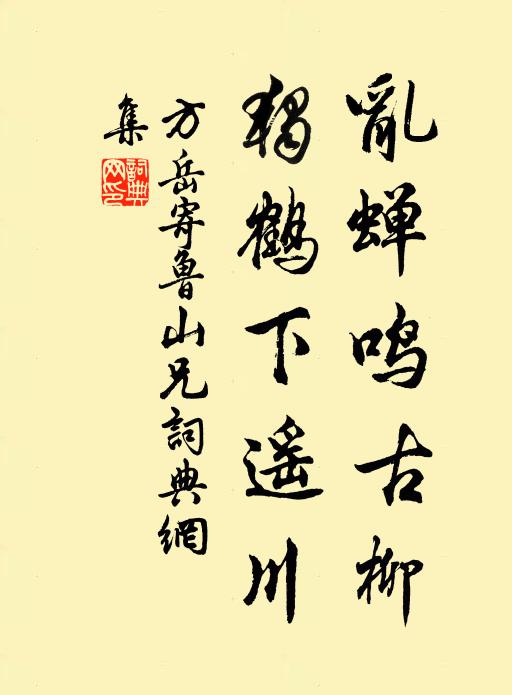 亂蟬鳴古柳
獨鶴下遥川
方岳寄魯山兄詞典網
集
詞典网印